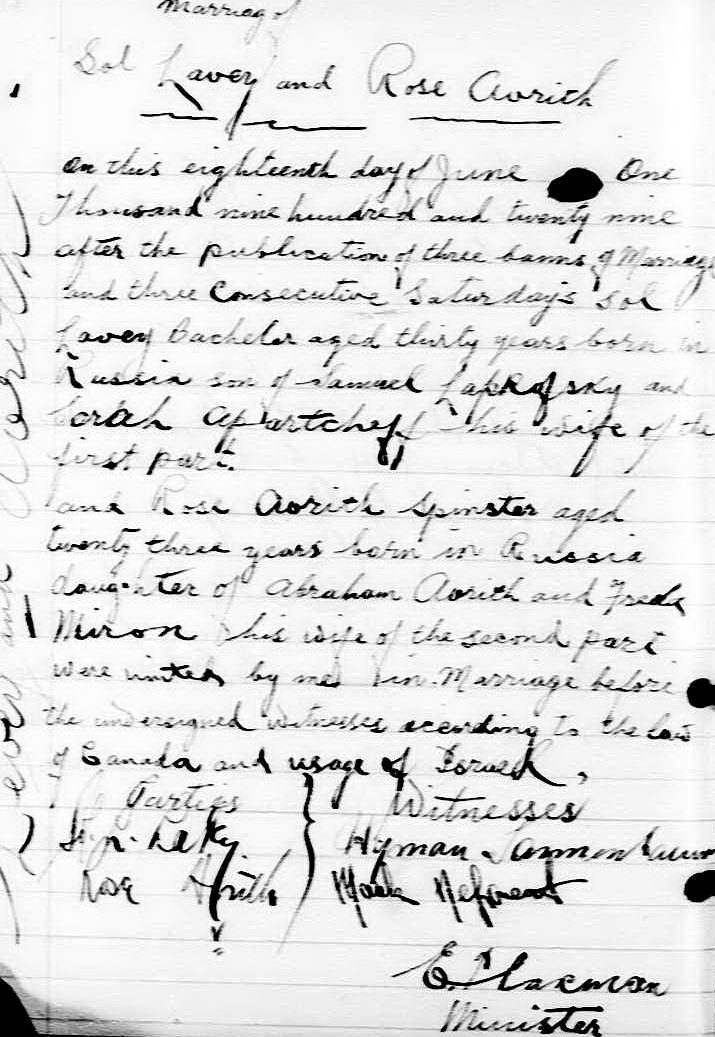 Marriag of
Sol Lavey and Rose Avrith
On this eighteenth day of June One
Thousand nine hundred and twenty nine
after the publication of three banns of Marriage
and three Consecutive Saturday's Sol
Lavey Bachelor aged thirty years born in
Russia son of Samuel Lapkofsky and
Sorah his wife of the
first part.
and Rose Avrith Spinster aged
twenty three years born in Russia
daughter of Abraham Avrith and
Miron his wife of the second part
were united by me in Marriage before
the undersigned witnesses according to the law
of Canada and usage of Israel,
Parties Witnesses
Hyman
Rose Avrith
Minister